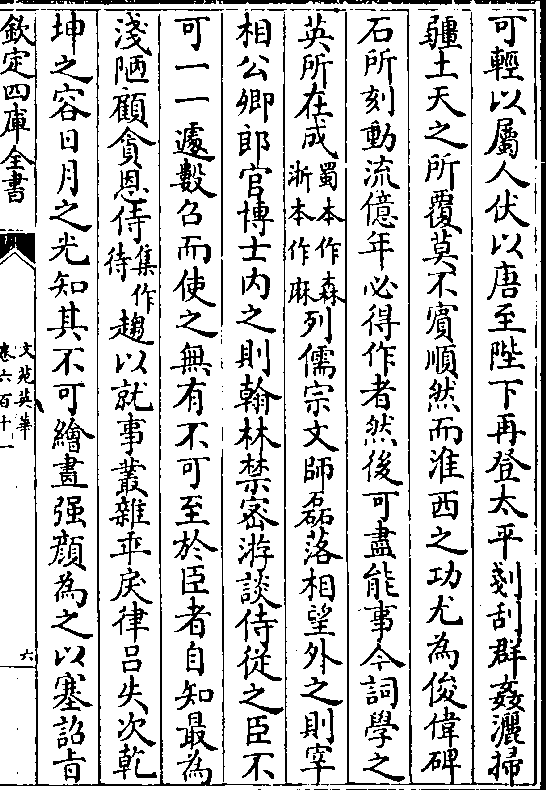 可輕以屬人伏以唐至陛下再登太平剗刮群姦灑掃
疆土天之所覆莫不賔順然而淮西之功尤為俊偉碑
石所刻動流億年必得作者然後可盡能事今詞學之
英所在成蜀本作森浙本作麻列儒宗文師磊落相望外之則宰
相公卿郎官博士内之則翰林禁密游談侍從之臣不
可一一遽數召而使之無有不可至於臣者自知最為
淺陋顧貪恩侍集作待趨以就事叢雜乖戾律呂失次乾
坤之容日月之光知其不可繪畫强顔為之以塞詔旨
欽定四庫全書
文苑英華
卷六百十一
六